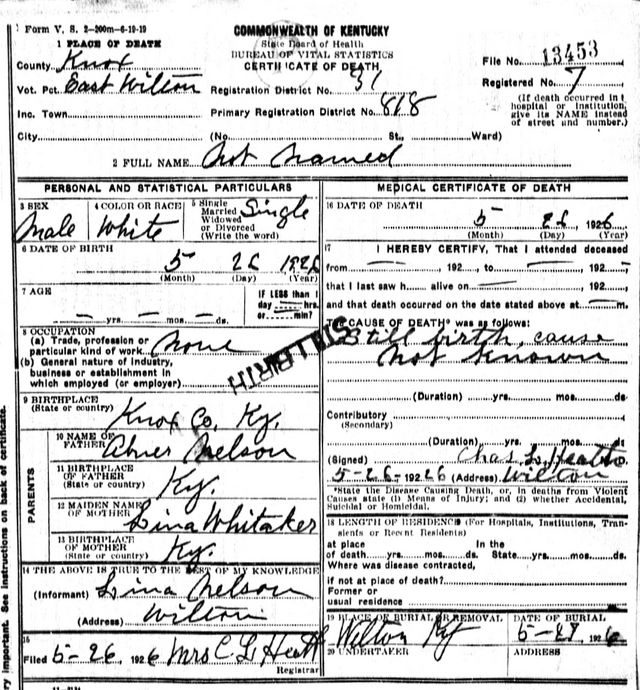 Form V. S. 2-200m-6-19-19
COMMONWEALTH OF KENTUCKY
State Board of Health
BUREAU OF VITAL STATISTICS
CERTIFICATE OF DEATH
1 PLACE OF DEATH
County Knox
Vot. Pct. East Wilton
Inc. Town
City
Registration District No. 31
Primary Registration District No. 818
(No. St., Ward)
File No. 13453
Registered No. 7
(If death occurred in
hospital or institution,
give its NAME instead
of street and number.)
2 FULL NAME Not Named
PERSONAL AND STATISTICAL PARTICULARS
3 SEX
Male
4 COLOR OR RACE
White
5 Single
Married
Widowed
or Divorced
(Write the word)
Single
6 DATE OF BIRTH
5 26 1926
(Month) (Day) (Year)
7 AGE
yrs. mos. ds.
IF LESS than 1
day hrs.
or min?
8 OCCUPATION
(a) Trade, profession or
particular kind of work None
(b) General nature of industry,
business or establishment in
which employed (or employer)
STILL BIRTH
9 BIRTHPLACE
(State or country)
Knox Co. Ky.
PARENTS
10 NAME OF
FATHER
Abner Nelson
11 BIRTHPLACE
OF FATHER
(State or country)
Ky.
12 MAIDEN NAME
OF MOTHER
Lina Whitaker
13 BIRTHPLACE
OF MOTHER
(State or country)
Ky.
14 THE ABOVE IS TRUE TO THE BEST OF MY KNOWLEDGE
(Informant) Lina Nelson
(Address) Wilton
15
Filed 5-26, 1926 Mrs C. L. Heath
Registrar
MEDICAL CERTIFICATE OF DEATH
16 DATE OF DEATH
5 26 1926
(Month) (Day) (Year)
17 I HEREBY CERTIFY, That I attended deceased
from , 192 , to , 192
that I last saw h alive on , 192
and that death occurred on the date stated above at m.
The CAUSE OF DEATH* was as follows:
Still birth, cause
not known
(Duration) yrs. mos. ds
Contributory
(Secondary)
(Duration) yrs. mos. ds
(Signed) Chas L. Heath
5-26-1926 (Address) Wilton
*State the Disease Causing Death, or, in deaths from Violent
Causes state (1) Means of Injury; and (2) whether Accidental,
Suicidal or Homicidal.
18 LENGTH OF RESIDENCE (For Hospitals, Institutions, Tran-
sients or Recent Residents)
at place In the
of death yrs. mos. ds. State yrs. mos. ds.
Where was disease contracted,
if not at place of death?
Former or
usual residence
19 PLACE OF BURIAL OR REMOVAL
Wilton Ky
DATE OF BURIAL
5-27, 1926
20 UNDERTAKER
ADDRESS
ry important. See instructions on back of certificate.